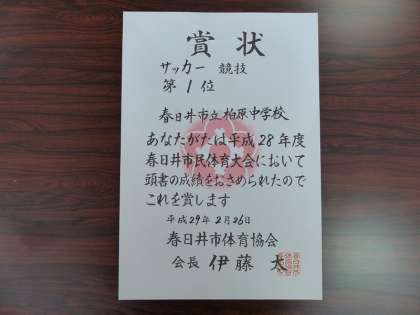 賞状
サッカー 競技
第1位
春日井市立柏原中学校
あなたがたは平成28年度
春日井市民体育大会において
頭書の成績をおさめられたので
これを賞します
平成29年2月26日
春日井市体育協会
会長 伊藤 太